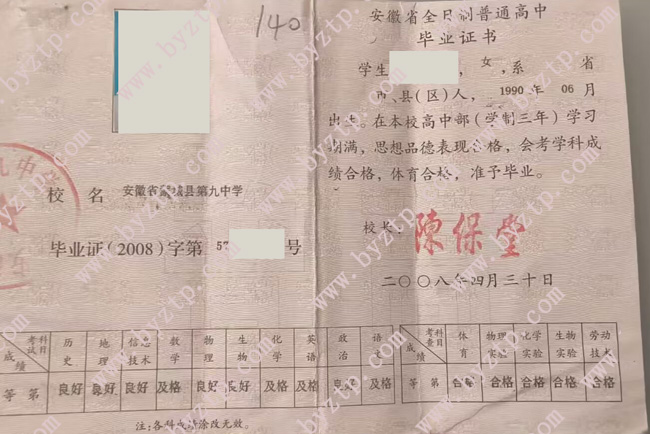 140
校 名 安徽省 县第九中学
毕业证(2008)字第 57 号
安徽省全日制普通高中
毕业证书
学生 , 女, 系 省
市、县(区)人, 1990 年 06 月
出生。在本校高中部(学制三年)学习
期满,思想品德表现合格,会考学科成
绩合格,体育合格,准予毕业。
校长: 陳保堂
二〇〇八年四月三十日
成绩 考试科目 历史 地理 信息技术 数学 物理 生物 化学 英语 政治 语文
等 第 良好 良好 良好 及格 良好 良好 及格 及格 良好 及格
成绩 考查科目 体育 物理实验 化学实验 生物实验 劳动技术
等 第 合格 合格 合格 合格 合格
注:各科成绩涂改无效。
www.byztp.com